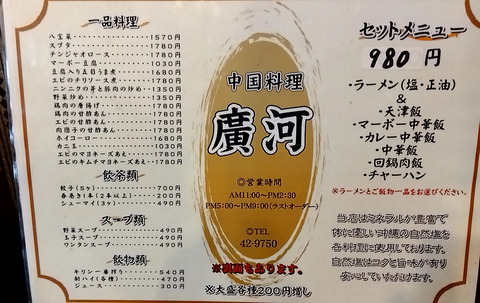 一品料理
八宝菜 1570円
スブタ 1780円
チンジャオロース 1780円
マーボー豆腐 1030円
豆腐入り五目うま煮 1680円
エビのチリソース煮 1780円
ニンニクの芽と豚肉の炒め 1350円
野菜炒め 1350円
鶏肉の唐揚げ 1780円
鶏肉の甘酢あん 1780円
エビの甘酢あん 1780円
肉団子の甘酢あん 1780円
ホイコーロー 1680円
カニ玉 1030円
エビのマヨネーズあえ 1780円
エビのキムチマヨネーズあえ 1780円
飲茶類
餃子(5ヶ) 700円
春巻き1本(2本以上) 200円
シューマイ(3ヶ) 490円
スープ類
野菜スープ 490円
玉子スープ 490円
ワンタンスープ 490円
飲物類
キリン一番搾り 540円
酎ハイ(各種) 470円
ジュース 300円
中国料理
廣河
◎営業時間
AM11:00〜PM2:30
PM5:00〜PM9:00(ラストオーダー)
◎TEL
42-9750
※個室もあります。
※大盛各種200円増し
セットメニュー
980円
・ラーメン(塩・正油)
&
・天津飯
・マーボー中華飯
・カレー中華飯
・中華飯
・回鍋肉飯
・チャーハン
※ラーメンとご飯物一品をお選びください。
当店はミネラルが豊富で
体に優しい沖縄の自然塩を
各料理に使用しております。
自然塩はコクと旨味が有り
安心していただけます。